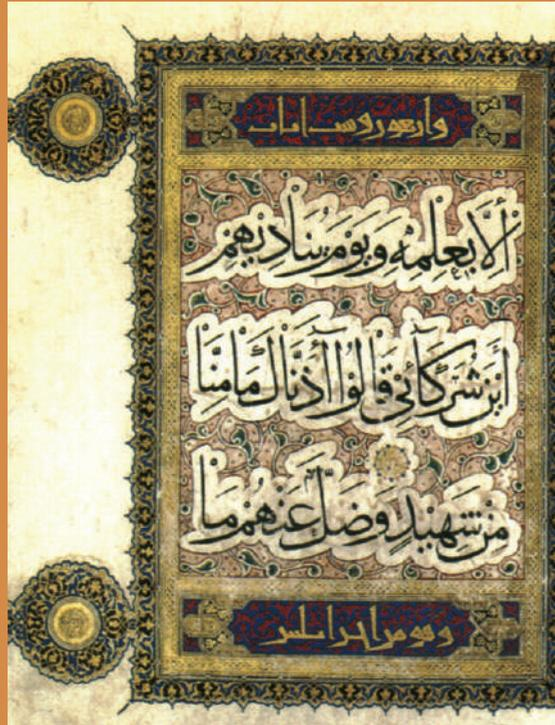 إِلَّا بِعِلْمِهِ وَيَوْمَ يُنَادِيهِمْ
أَيْنَ شُرَكَآئِي قَالُوٓا آذَنَّاكَ مَا مِنَّا
مِن شَهِيدٍ وَضَلَّ عَنْهُم مَا